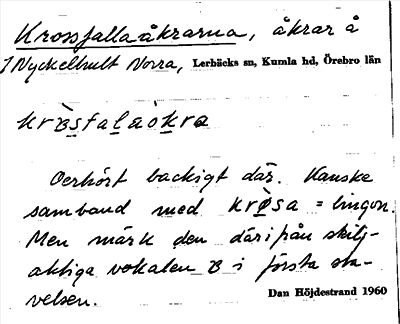 Krossfallaåkrarna, åkrar å
1 Nyckelhult Norra, Lerbäcks sn, Kumla hd, Örebro län
Oerhört backigt där. Kanske
samband med krøsa = lingon.
Men märk den därifrån skilj-
aktiga vokalen B i första sta-
velsen.
Dan Höjdestrand 1960